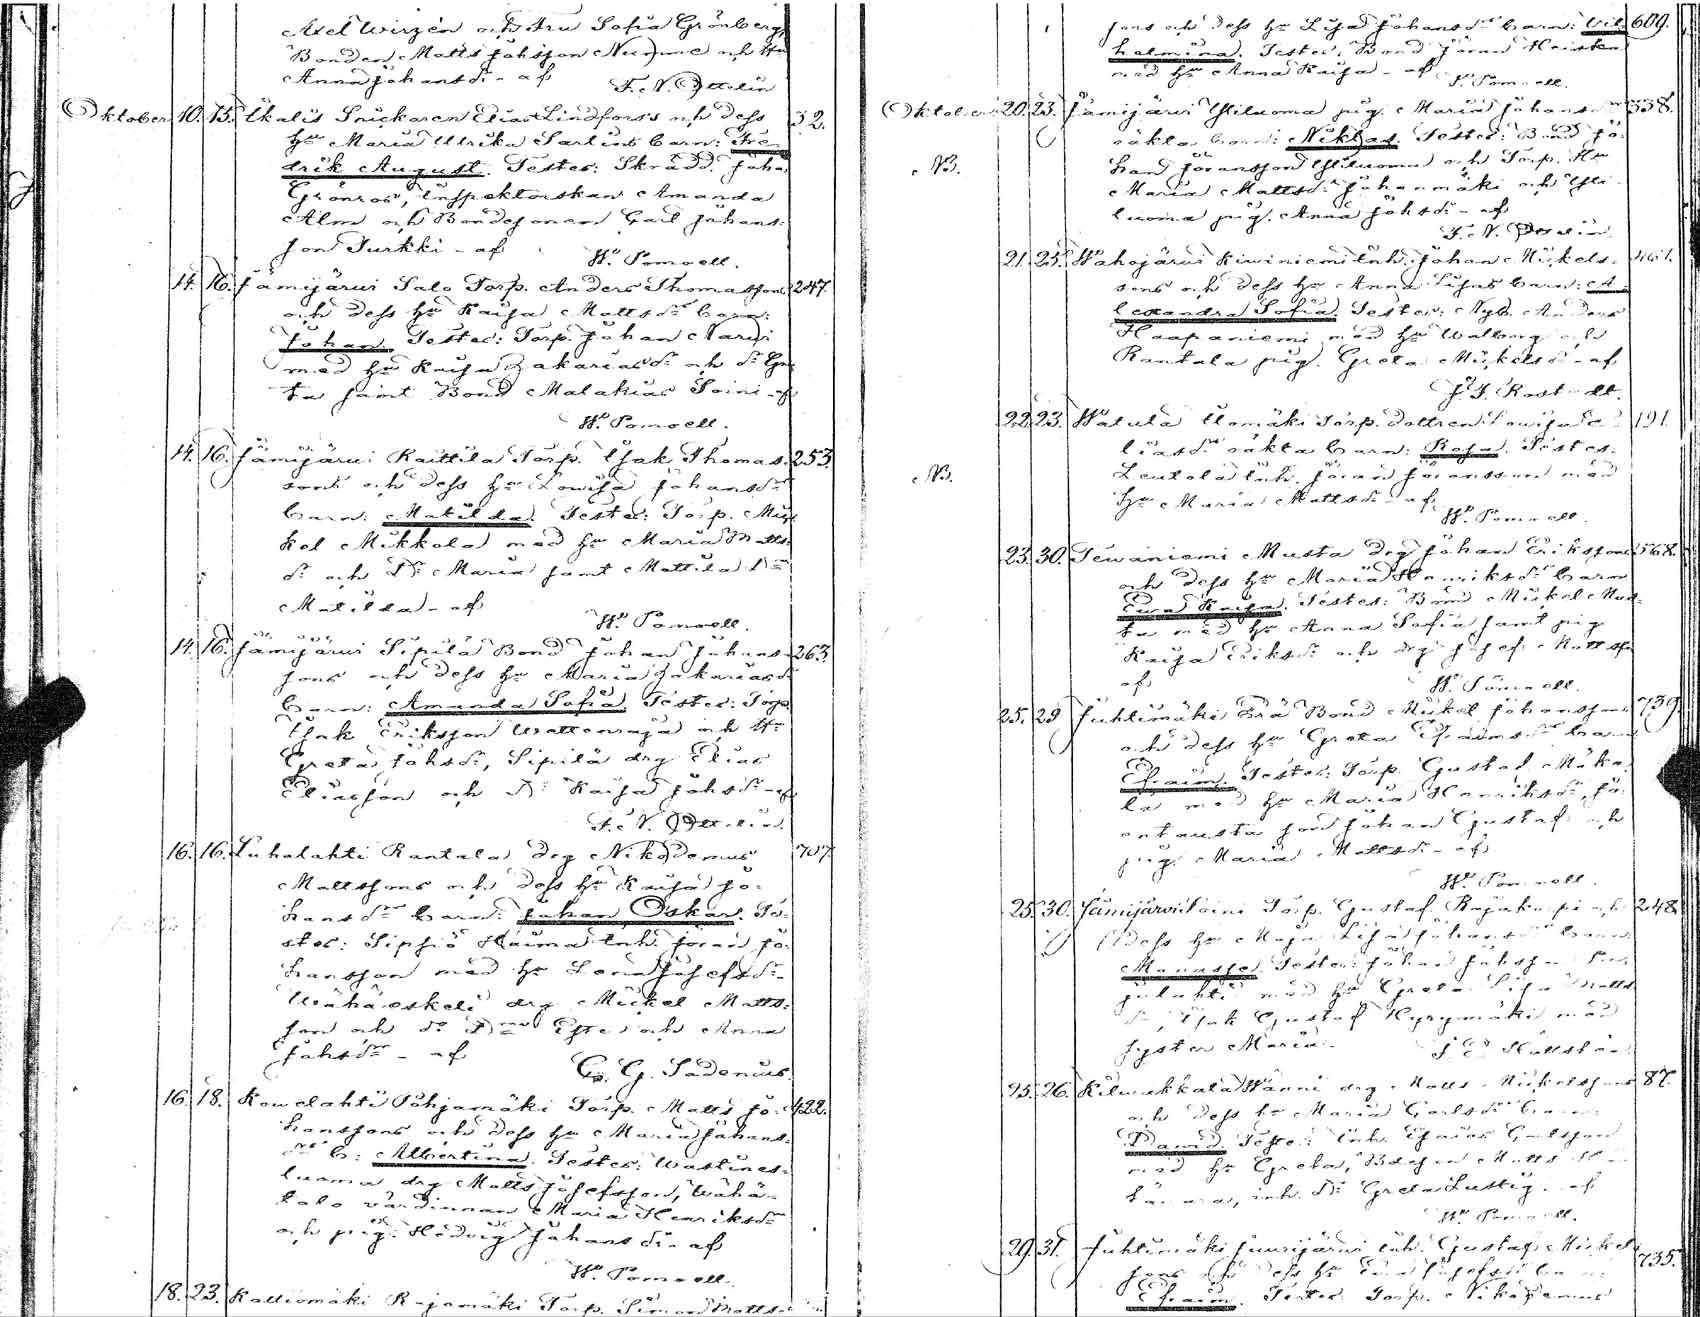 Axel Wirzén och Fru Sofia Grönberg,
Bonden Matts Johsson Numme och Hu
Anna Johansdr - af
F. N. Ottelin
Oktober 10. 15. Ikalis Snickaren Elias Lindforss och dess 32.
hu Maria Ulrika Sarlins barn: Fre
drik August. Testes: Skrädd. Joha
Grönroos, Inspektorskan Amanda
Alm och Bondesonen Carl Johans-
son Turkki - af
W. Pomoell.
14. 16. Jämijärvi Salo Torp. Anders Thomassons 247.
och dess hu Kaisa Mattsdrs barn:
Johan. Testes: Torp. Johan Narvi
med hu Kaisa Zakariasdr och dr Gre
ta samt Bond Malakias Soini - af
W. Pomoell.
14. 16. Jämijärvi Kaittila Torp. Isak Thomas- 253.
sons och dess hu Lovisa Johansdrs
barn: Matilda. Testes: Torp. Mic
kel Mikkola med hu Maria Matts-
dr och Dr Maria samt Mattila Dr
Matilda - af
W. Pomoell.
14. 16. Jämijärvi Sipilä Bond Johan Johans- 263.
sons och dess hu Maria Zakariasdrs
barn: Amanda Sofia. Testes: Torp.
Isak Eriksson Wattenraja och Hu
Greta Johsdr, Sipilä drg Elias
Eliasson och Dr Kaisa Johsdr - af
F. N. Ottelin.
16. 16. Luhalahti Rantala drg Nikodemus 707.
Mattssons och dess hu Kaisa Jo-
hansdrs barn: Johan Oskar. Te-
stes: Sippo Hauma Inh. Jöran Jo-
hansson med hu Lena Josefsdr
Wähäeskeli drg Mickel Matts-
son och dr Dmr Ester och Anna
Johsdr - af
C. G. Sadenius.
16. 18. Kowelahti Pohjamäki Torp. Matts Jo- 422.
hanssons och dess hu Maria Johans-
drs b: Albertina. Testes: Wastines-
luoma drg Matts Josefsson, Wähä-
talo värdinnan Maria Henriksdr
och pig. Hedvig Johansdr - af
W. Pomoell.
18. 23. Kalliomäki Rajamäki Torp. Simon Matts-
sons och dess hu Lisa Johansdrs barn: Vil- 609.
helmina. Testes: Bond Jöran Heiskan
med hu Anna Kaisa - af
W. Pomoell.
Oktober 20. 23. Jämijärvi Yliluoma pig. Maria Johansdrs 338.
oäkta barn: Niklas. Testes: Bond Jo-
NB. han Jöransson Yliluoma och Torp. Hu
Maria Mattsdr Juhanmäki och Yli-
luoma pig. Anna Johsdr - af
F. N. Ottelin.
21. 25. Wahojärvi Kiviniemi Inh. Johan Mickels- 461.
sons och dess hu Anna Lisas barn: A-
lexandra Sofia. Testes: Nyb. Anders
Haapaniemi med hu Walborg och
Rantala pig. Greta Mickelsdr - af
J. F. Rostedt.
22. 23. Watula Ilomäki Torp. dottren Lovisa E- 191.
liasdrs oäkta barn: Rosa. Testes:
NB. Leutola Inh. Jöran Jöransson med
hu Maria Mattsdr - af
W. Pomoell.
23. 30. Tewaniemi Musta drg Johan Erikssons 568.
och dess hu Maria Henriksdrs barn
Ewa Kaisa. Testes: Bond Mickel Mus-
ta med hu Anna Sofia samt pig
Kaisa Eriksdr och drg Josef Mattss
af
W. Pomoell.
25. 29. Juhtimäki Erä Bond Mickel Johanssons 739.
och dess hu Greta Efraimsdrs barn
Efraim. Testes: Torp. Gustaf Mäke-
lä med hu Maria Henriksdr, Jo-
antausta son Johan Gustaf och
pig. Maria Mattsdr - af
W. Pomoell.
25. 30. Jämijärvi Soini Torp. Gustaf Rajakorpi och 248.
dess hu Maja Lisa Johansdrs barn
Manasse. Testes: Johan Johsson
med hu Greta Lisa Matts
dr, Isak Gustaf Kyrynmäki med
syster Maria.
25. 26. Kilwakkala Wänni drg Matts Mickelssons 87.
och dess hu Maria Carlsdrs barn
Dawid. Testes: Inh. Esaias Carlsson
med hu Greta, Bdesn Matts
och dr Greta Lustig - af
W. Pomoell.
29. 31. Juhtimäki Juurijärvi Inh. Gustaf Mickels 735.
sons och dess hu Josefsdrs barn
Efraim. Testes: Torp. Nikodemus